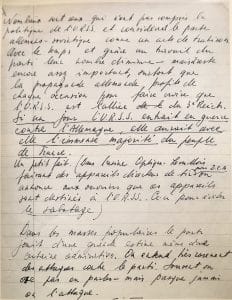 Nombreux sont ceux qui n'ont pas compris la
politique de l'U.R.S.S. et considèrent le pacte
germano-soviétique comme un acte de trahison
Avec le temps et grâce au travail du
parti leur nombre diminue
encore assez important, surtout que
la propagande allemande profite de
chaque occasion pour faire croire que
l'U.R.S.S. est l'alliée du Reich.
Si un jour l'U.R.S.S. entrait en guerre
contre l'Allemagne, elle aurait avec
elle l'immense majorité du peuple
de France.
Un petit fait : Une usine Optique
fabriquant des appareils de
annonce aux ouvriers que ces appareils
sont destinés à l'U.R.S.S. (ceci pour éviter
le sabotage)
Dans les masses populaires le parti
jouit d'une grande estime même d'une
certaine admiration. On entend très rarement
des attaques contre le parti. Souvent on
n'ose pas en parler mais presque jamais
on l'attaque.